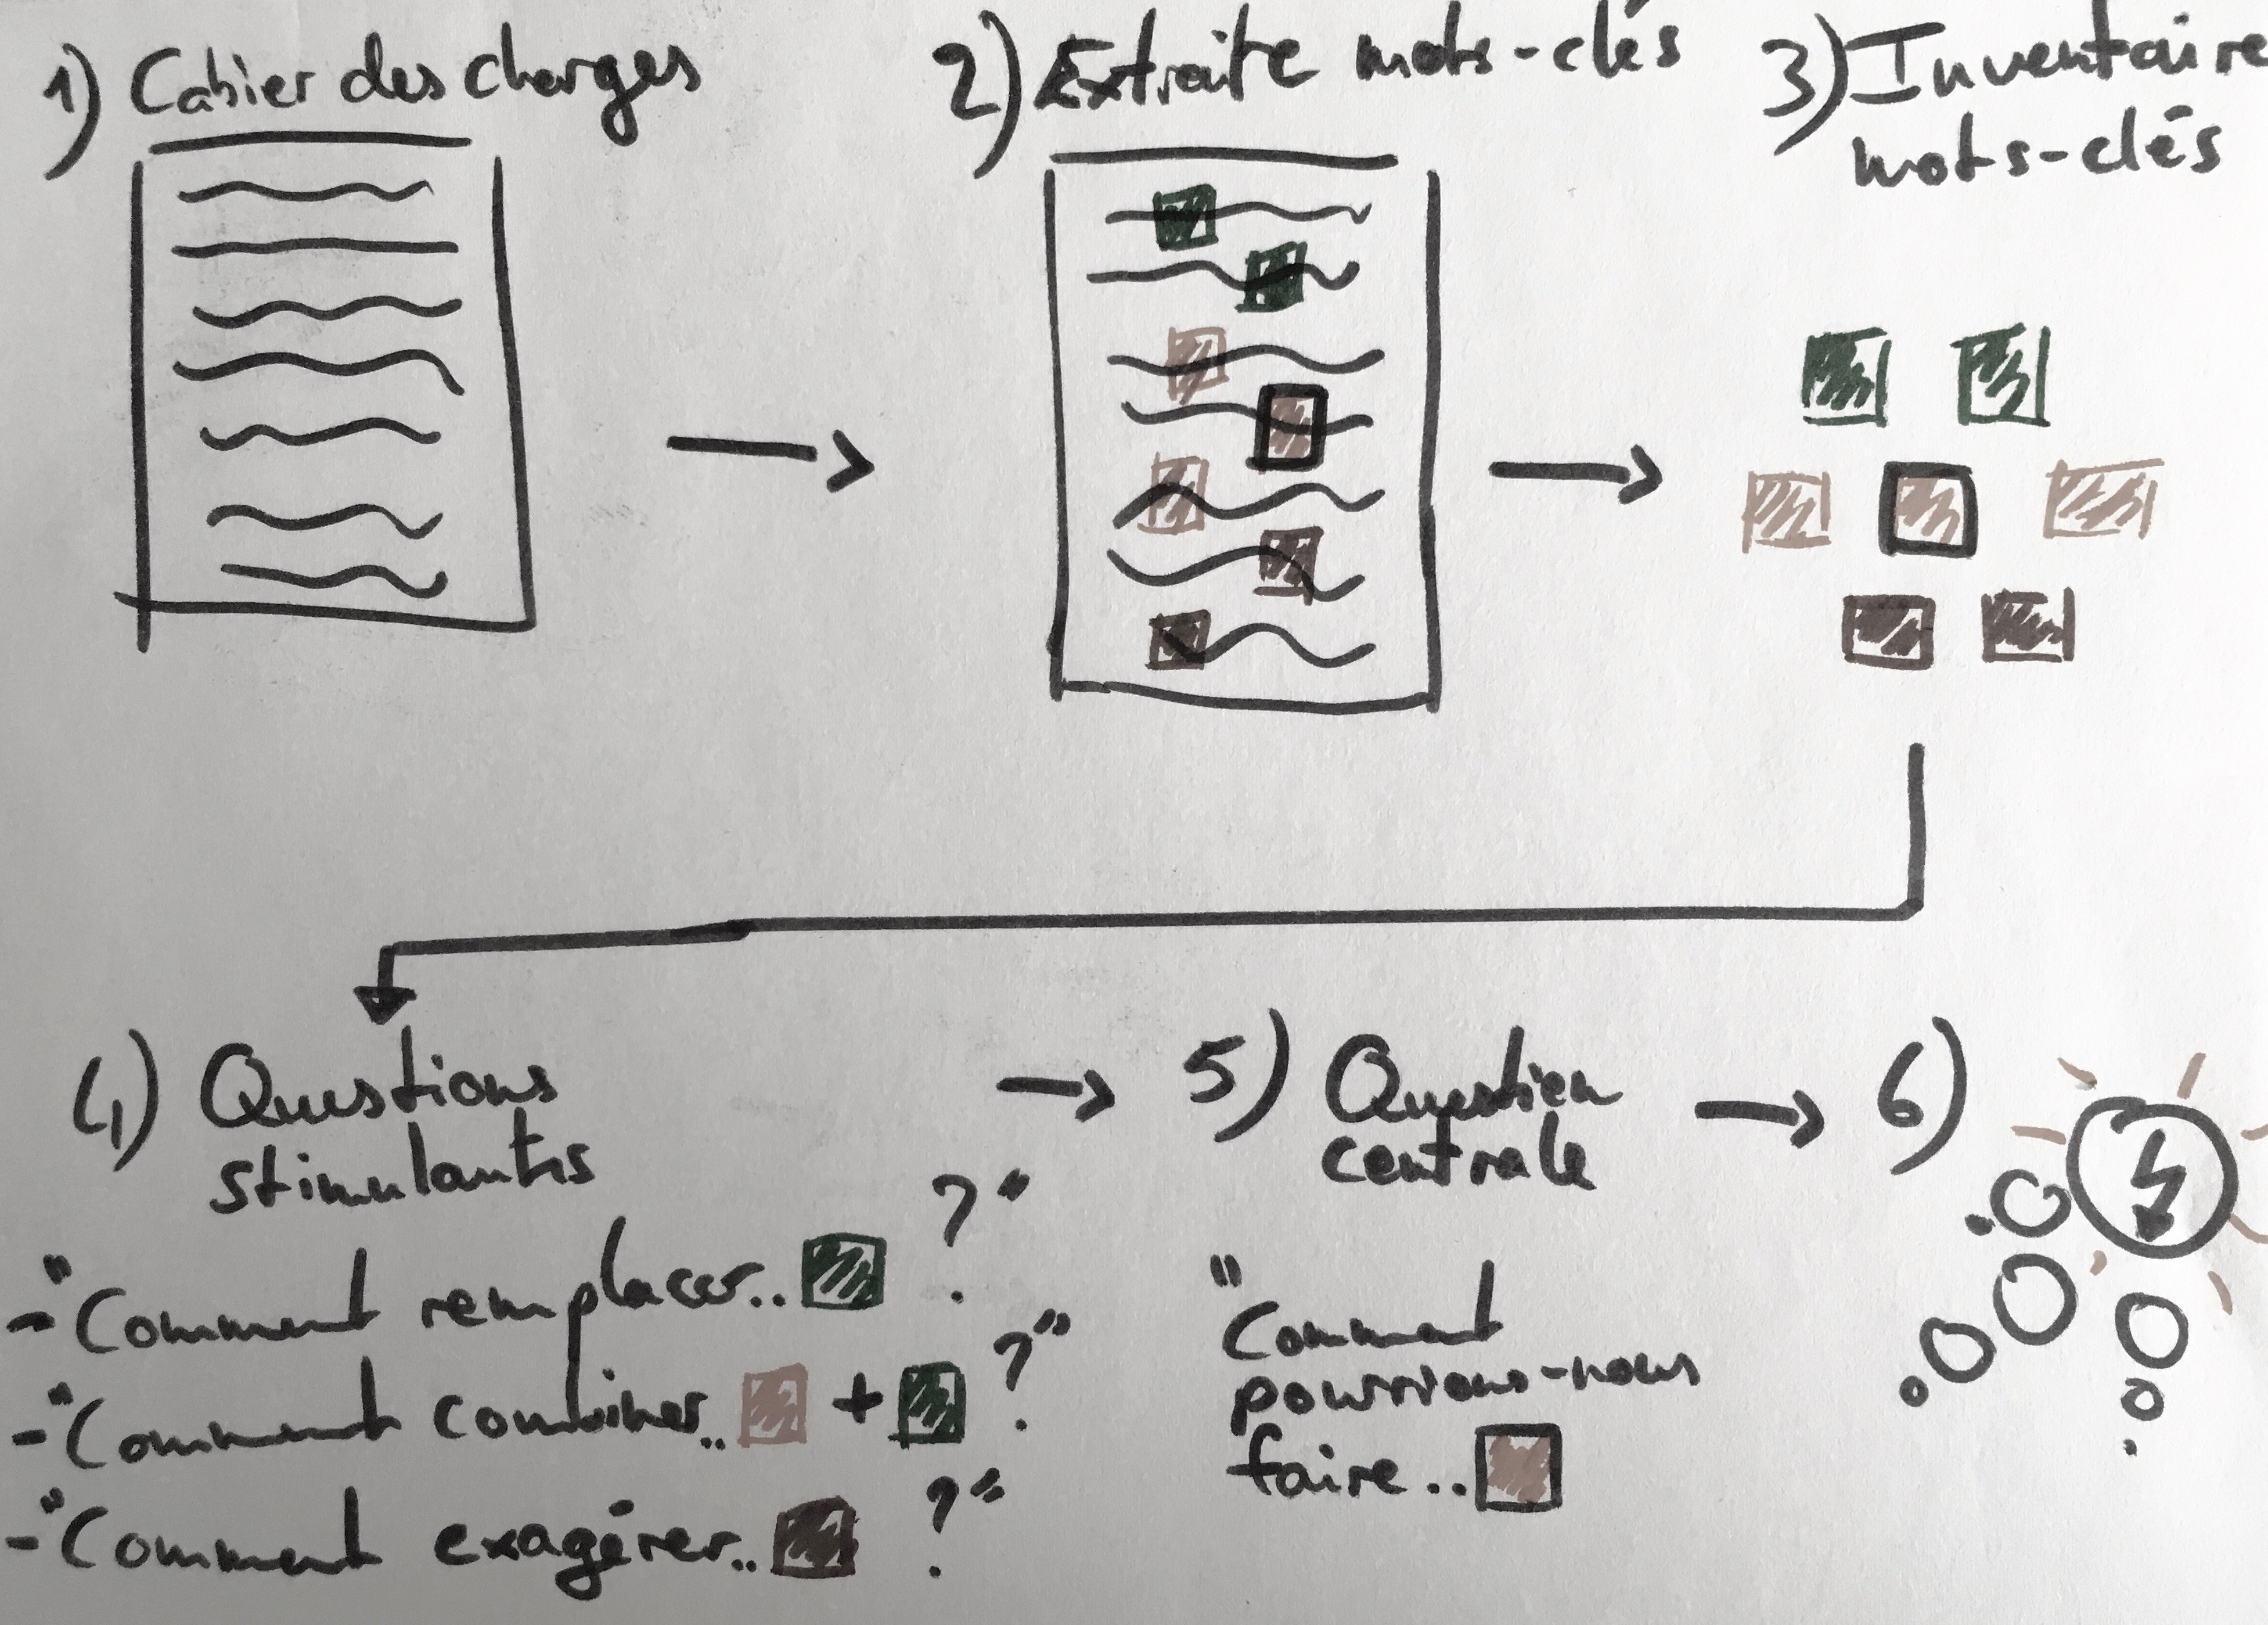 1) Cahier des charges
2) Extraite mots-clés
3) Inventaire
mots-clés
4) Questions
stimulantes
-"Comment remplacer.. ?"
-"Comment combiner.. + ?"
-"Comment exagérer.. ?"
5) Question
centrale
"Comment
pourrions-nous
faire..
6)